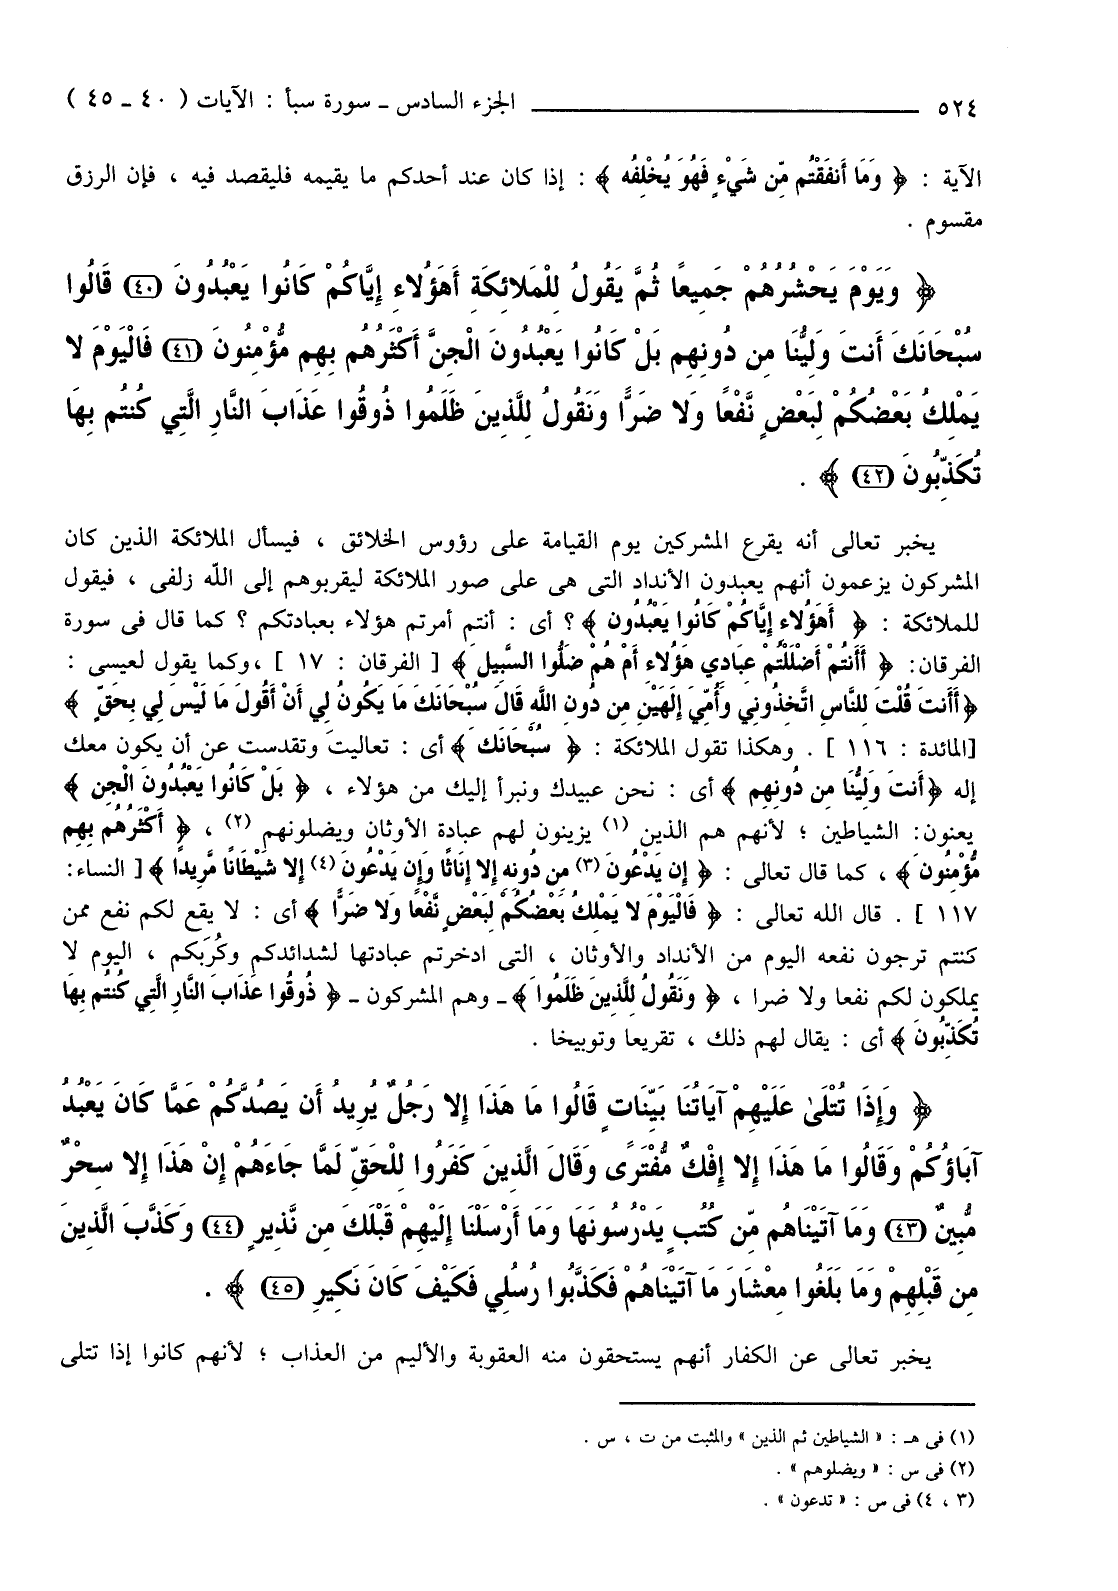 ٥٢٤ ــــــــــــــــــــ الجزء السادس ـ سورة سبأ : الآيات ( ٤٠ ـ ٤٥ )
الآية : ﴿ وَمَا أَنفَقْتُم مِّن شَيْءٍ فَهُوَ يُخْلِفُه ﴾ : إذا كان عند أحدكم ما يقيمه فليقصد فيه ، فإن الرزق
مقسوم .
﴿ وَيَوْمَ يَحْشُرُهُمْ جَمِيعًا ثُمَّ يَقُولُ لِلْمَلائِكَةِ أَهَؤُلاءِ إِيَّاكُمْ كَانُوا يَعْبُدُونَ (٤٠) قَالُوا
سُبْحَانَكَ أَنتَ وَلِيُّنَا مِن دُونِهِم بَلْ كَانُوا يَعْبُدُونَ الْجِنَّ أَكْثَرُهُم بِهِم مُّؤْمِنُونَ (٤١) فَالْيَوْمَ لا
يَمْلِكُ بَعْضُكُمْ لِبَعْضٍ نَّفْعًا وَلا ضَرًّا وَنَقُولُ لِلَّذِينَ ظَلَمُوا ذُوقُوا عَذَابَ النَّارِ الَّتِي كُنتُم بِهَا
تُكَذِّبُونَ (٤٢) ﴾ .
يخبر تعالى أنه يقرع المشركين يوم القيامة على رؤوس الخلائق ، فيسأل الملائكة الذين كان
المشركون يزعمون أنهم يعبدون الأنداد التى هى على صور الملائكة ليقربوهم إلى الله زلفى ، فيقول
للملائكة : ﴿ أَهَؤُلاءِ إِيَّاكُمْ كَانُوا يَعْبُدُون ﴾ ؟ أى : أنتم أمرتم هؤلاء بعبادتكم ؟ كما قال فى سورة
الفرقان: ﴿ أَأَنتُمْ أَضْلَلْتُمْ عِبَادِي هَؤُلاءِ أَمْ هُمْ ضَلُّوا السَّبِيلَ ﴾ [ الفرقان : ١٧ ] ،وكما يقول لعيسى :
﴿أَأَنتَ قُلْتَ لِلنَّاسِ اتَّخِذُونِي وَأُمِّيَ إِلَهَيْنِ مِن دُونِ اللَّهِ قَالَ سُبْحَانَكَ مَا يَكُونُ لِي أَنْ أَقُولَ مَا لَيْسَ لِي بِحَقٍّ ﴾
[المائدة : ١١٦ ] . وهكذا تقول الملائكة : ﴿ سُبْحَانَكَ ﴾ أى : تعاليت وتقدست عن أن يكون معك
إله ﴿أَنتَ وَلِيُّنَا مِن دُونِهِم ﴾ أى : نحن عبيدك ونبرأ إليك من هؤلاء ، ﴿ بَلْ كَانُوا يَعْبُدُونَ الْجِن ﴾
يعنون: الشياطين ؛ لأنهم هم الذين (١) يزينون لهم عبادة الأوثان ويضلونهم (٢) ، ﴿ أَكْثَرُهُم بِهِم
مُّؤْمِنُونَ ﴾ ، كما قال تعالى : ﴿ إِن يَدْعُونَ (٣) مِن دُونِهِ إِلا إِنَاثًا وَإِن يَدْعُونَ (٤) إِلا شَيْطَانًا مَّرِيدًا ﴾ [ النساء:
١١٧ ] . قال الله تعالى : ﴿ فَالْيَوْمَ لا يَمْلِكُ بَعْضُكُمْ لِبَعْضٍ نَّفْعًا وَلا ضَرًّا ﴾ أى : لا يقع لكم نفع ممن
كنتم ترجون نفعه اليوم من الأنداد والأوثان ، التى ادخرتم عبادتها لشدائدكم وكُرَبكم ، اليوم لا
يملكون لكم نفعا ولا ضرا ، ﴿ وَنَقُولُ لِلَّذِينَ ظَلَمُوا ﴾ـ وهم المشركون ـ ﴿ ذُوقُوا عَذَابَ النَّارِ الَّتِي كُنتُم بِهَا
تُكَذِّبُونَ ﴾ أى : يقال لهم ذلك ، تقريعا وتوبيخا .
﴿ وَإِذَا تُتْلَىٰ عَلَيْهِمْ آيَاتُنَا بَيِّنَاتٍ قَالُوا مَا هَذَا إِلا رَجُلٌ يُرِيدُ أَن يَصُدَّكُمْ عَمَّا كَانَ يَعْبُدُ
آبَاؤُكُمْ وَقَالُوا مَا هَذَا إِلا إِفْكٌ مُّفْتَرًى وَقَالَ الَّذِينَ كَفَرُوا لِلْحَقِّ لَمَّا جَاءَهُمْ إِنْ هَذَا إِلا سِحْرٌ
مُّبِينٌ (٤٣) وَمَا آتَيْنَاهُم مِّن كُتُبٍ يَدْرُسُونَهَا وَمَا أَرْسَلْنَا إِلَيْهِمْ قَبْلَكَ مِن نَّذِيرٍ (٤٤) وَكَذَّبَ الَّذِينَ
مِن قَبْلِهِمْ وَمَا بَلَغُوا مِعْشَارَ مَا آتَيْنَاهُمْ فَكَذَّبُوا رُسُلِي فَكَيْفَ كَانَ نَكِيرِ (٤٥) ﴾ .
يخبر تعالى عن الكفار أنهم يستحقون منه العقوبة والأليم من العذاب ؛ لأنهم كانوا إذا تتلى
(١) فى هـ : « الشياطين ثم الذين » والمثبت من ت ، س .
(٢) فى س : « ويضلوهم » .
(٣ ، ٤) فى س : « تدعون » .